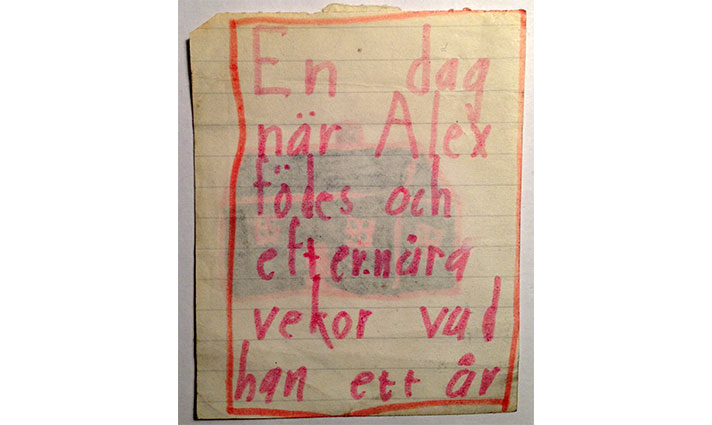 En dag
när Alex
födes och
efter.nåra
vekor vad
han ett år